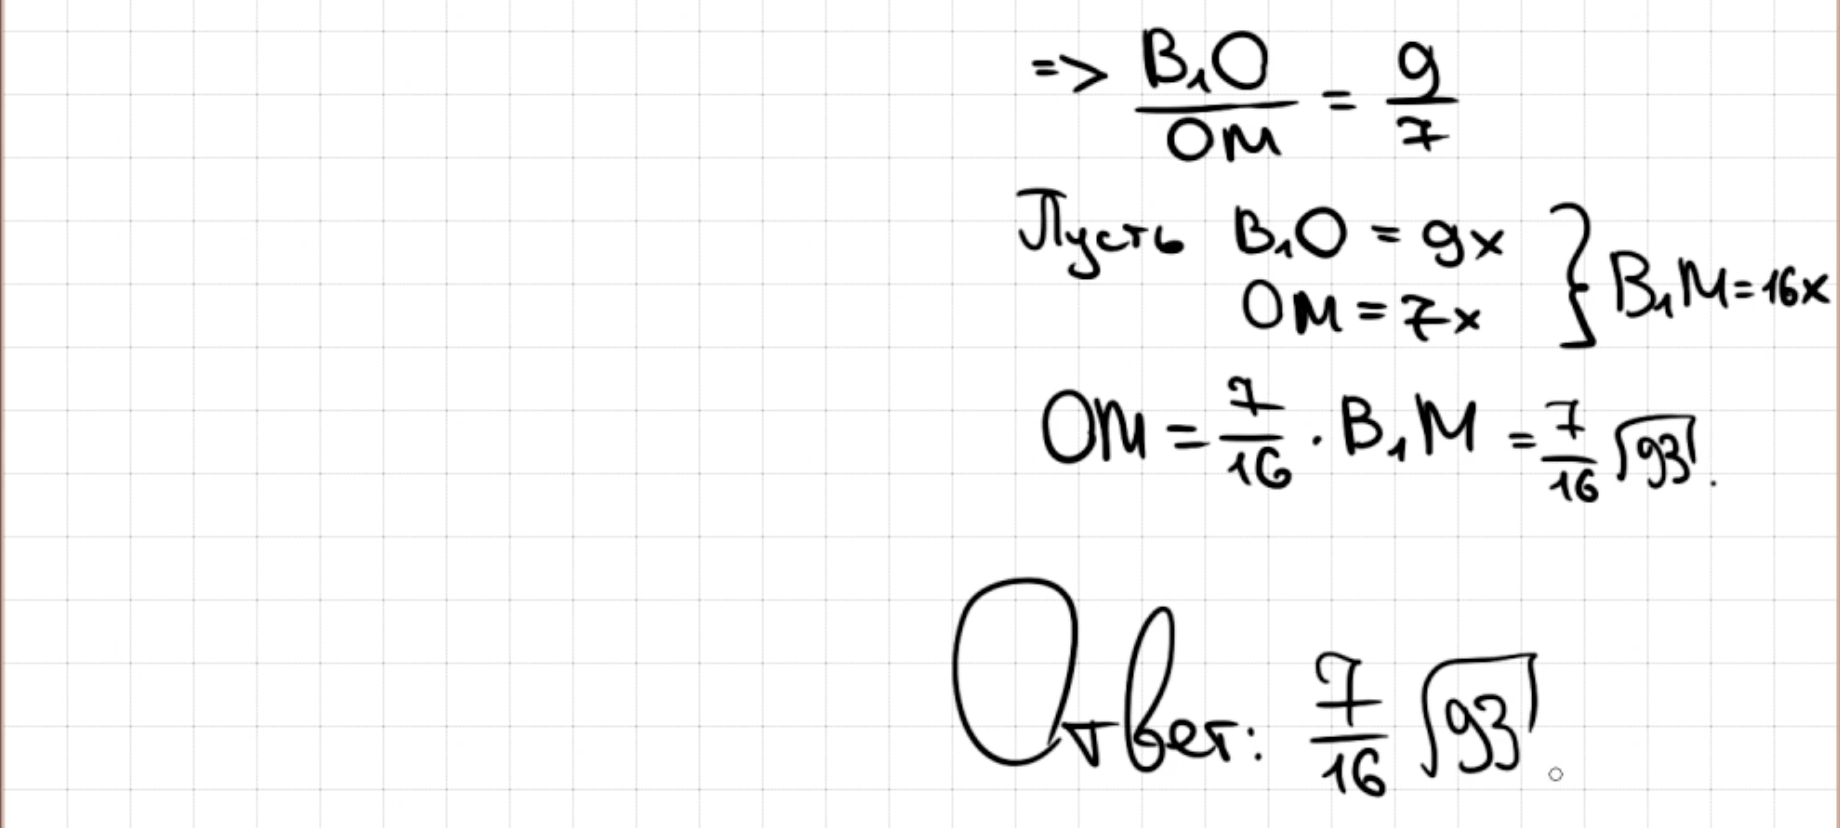 => B₁O/OM = 9/7
Пусть B₁O = 9x
OM = 7x } B₁M = 16x
OM = 7/16 · B₁M = 7/16 √93.
Ответ: 7/16 √93.